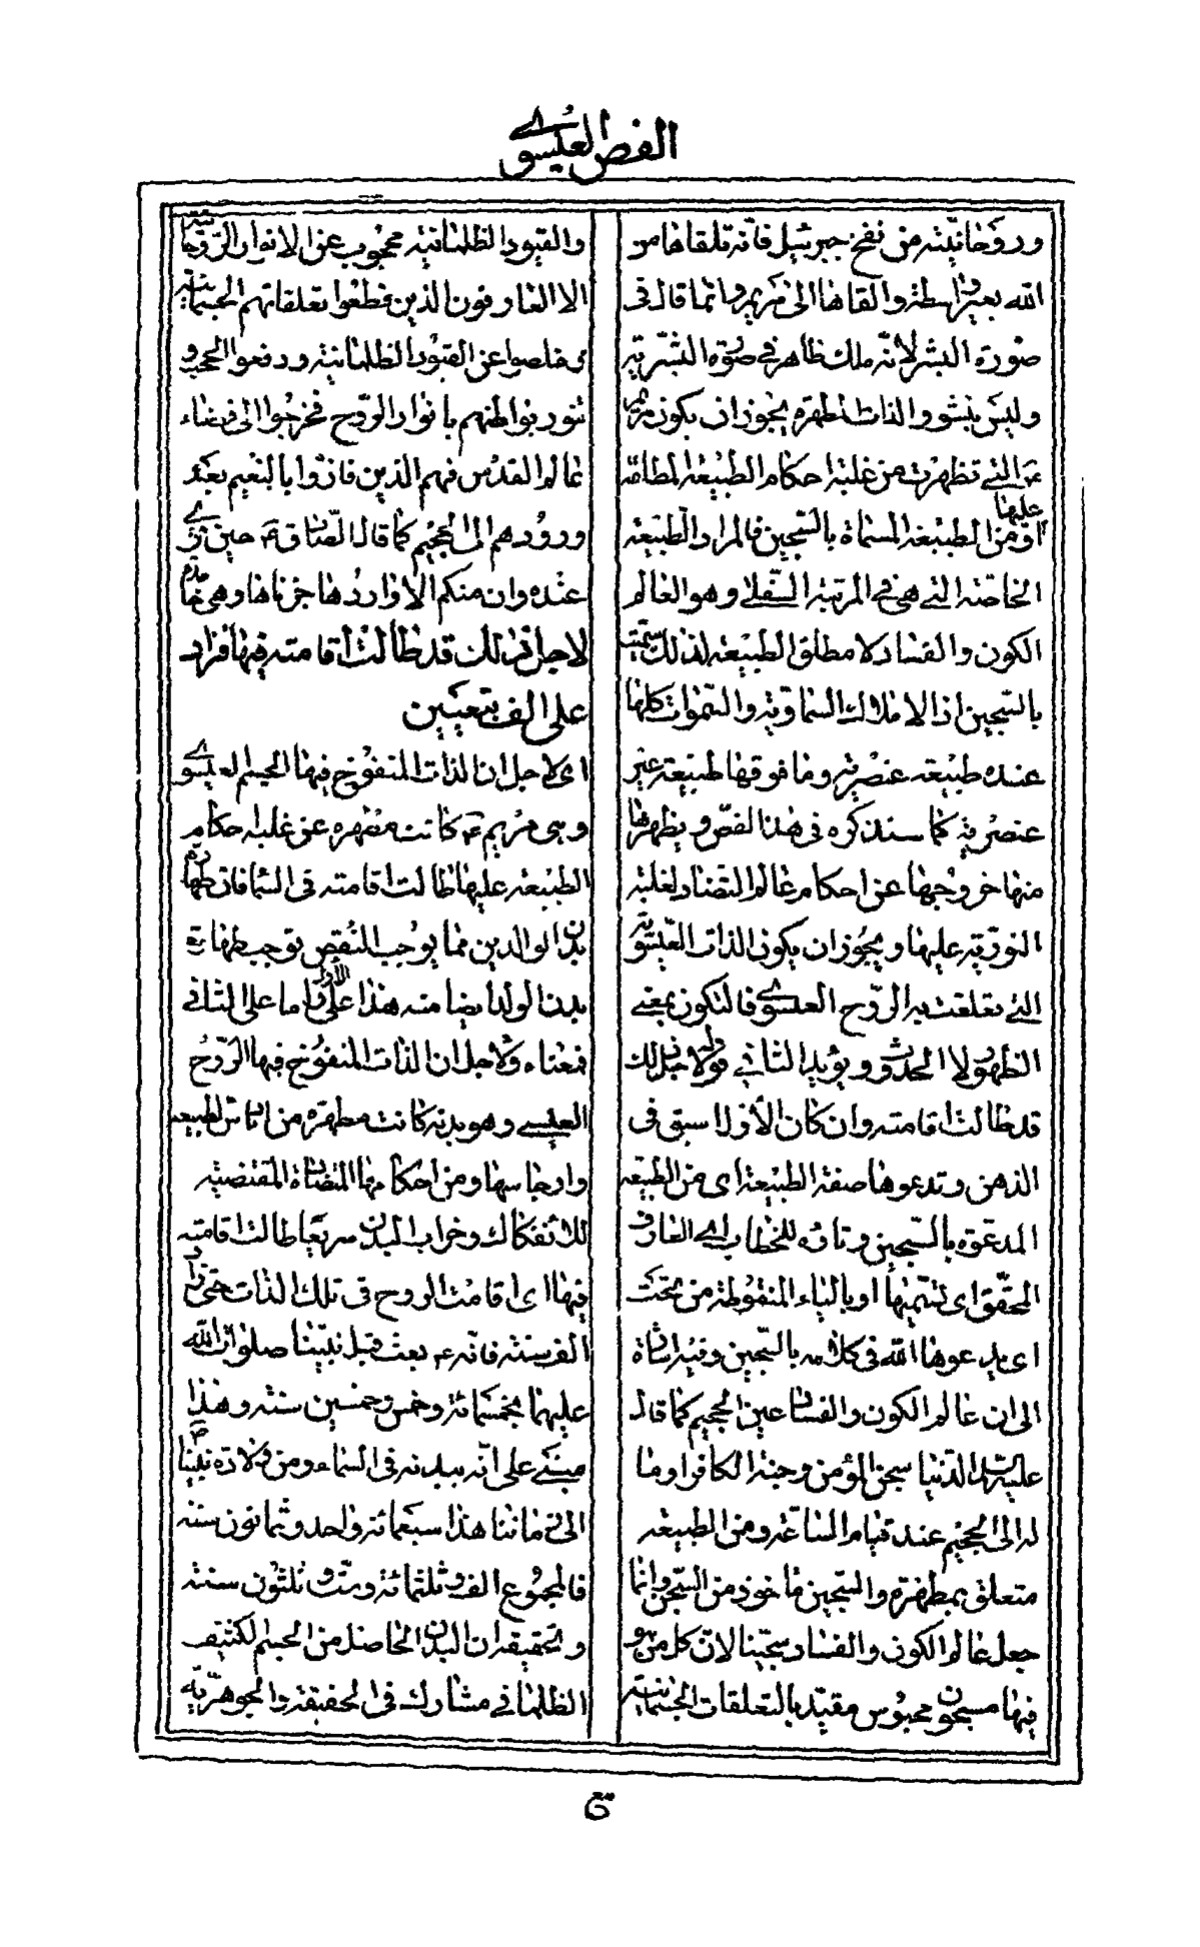 الفص العيسوي
وروحانيته من نفخ جبرئيل فانه تلقاها من
الله بغير واسطة والقاها الى مريم وانما قال في
صورة البشر لانه ملك ظاهر في صورة البشرية
وليس ببشر والذات المطهرة يجوز ان يكون مريم
عم التي تطهرت من غلبة احكام الطبيعة المطلقة
عليها
او من الطبيعة المسماة بالسجين فالمراد الطبيعة
الخاصة التي هي في المرتبة السفلى وهو العالم
الكون والفساد لا مطلق الطبيعة لذلك سميت
بالسجين اذ الاملاك السماوية والسموات كلها
عنده طبيعة عنصرية وما فوقها طبيعة غير
عنصرية كما سنذكره في هذا الفص وتطهرها
منها خروجها عن احكام عالم التضاد لغلبة
النورية عليها ويجوز ان يكون الذات العيسوية
التي تعلقت بها الروح العيسوي فالتكون بمعنى
الظهور لا الحدوث ويؤيد الثاني قوله لاجل ذلك
قد طالت اقامته وان كان الاول اسبق في
الذهن وتدعوها صفة الطبيعة اى من الطبيعة
المدعوة بالسجين وتاؤه للخطاب اى العارف
المحقق اى تسميها او بالياء المنقوطة من تحت
اى يدعوها الله في كلامه بالسجين وفيه اشارة
الى ان عالم الكون والفساد عين الجحيم كما قال
عليه السلام الدنيا سجن المؤمن وجنة الكافر وما
له الى الجحيم عند قيام الساعة ومن الطبيعة
متعلق بمطهرة والسجين ماخوذ من السجن وانما
جعل عالم الكون والفساد سجينا لان كل من هو
فيها مسجون محبوس مقيد بالتعلقات الجسمانية
والقيود الظلمانية محجوب عن الانوار الروحانية
الا العارفون الذين قطعوا تعلقاتهم الجسمانية
فخلصوا عن القيود الظلمانية ورفعوا الحجب و
تنور بواطنهم بانوار الروح فخرجوا الى فضاء
عالم القدس فهم الذين فازوا بالنعيم بعد
ورودهم الى الجحيم كما قال الصادق عم حين قرى
عنده وان منكم الا واردها جزناها وهى خامدة
لاجل ذلك قد طالت اقامته فيها فزاد
على الف بتعيين
اى لاجل ان الذات المنفوخ فيها الجسم العيسوي
وهى مريم عم كانت مطهرة عن غلبة احكام
الطبيعة عليها طالت اقامته في السماء فان طهارة
بدن الوالدين مما يوجب النقص توجب طهارة
بدن الولد ايضا منه هذا على الاول واما على الثاني
فمعناه ولاجل ان الذات المنفوخ فيها الروح
العيسى وهو بدنه كانت مطهرة من ادناس الطبيعة
وارجاسها ومن احكامها المتضادة المقتضية
للانفكاك وخراب البدن سريعا طالت اقامته
فيها اى اقامت الروح في تلك الذات حتى زاد
الف سنة فانه عم بعث قبل نبينا صلوات الله
عليهما بخمسمائة وخمس وخمسين سنة وهذا
مبنى على انه ببدنه في السماء ومن ولادة نبينا ص
الى زماننا هذا سبعمائة واحد وثمانون سنة
فالمجموع الف وثلثمائة وست وثلثون سنة
وتحقيقه ان البدن الحاصل من الجسم الكثيف
الظلماني مشارك في الحقيقة والجوهرية